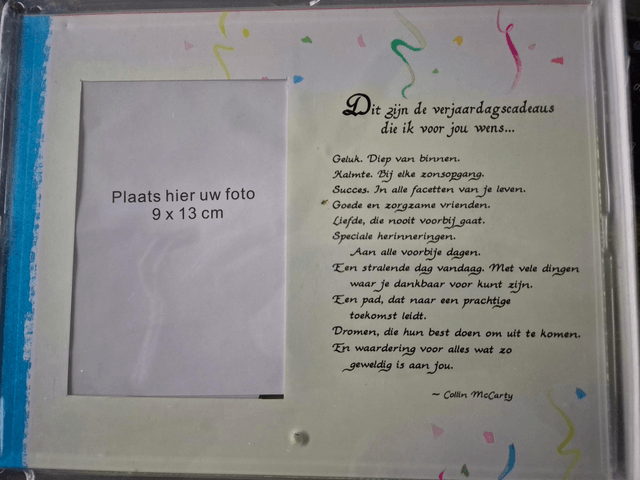 Plaats hier uw foto
9 x 13 cm
Dit zijn de verjaardagscadeaus
die ik voor jou wens...
Geluk. Diep van binnen.
Kalmte. Bij elke zonsopgang.
Succes. In alle facetten van je leven.
Goede en zorgzame vrienden.
Liefde, die nooit voorbij gaat.
Speciale herinneringen.
Aan alle voorbije dagen.
Een stralende dag vandaag. Met vele dingen
waar je dankbaar voor kunt zijn.
Een pad, dat naar een prachtige
toekomst leidt.
Dromen, die hun best doen om uit te komen.
En waardering voor alles wat zo
geweldig is aan jou.
~ Collin McCarty